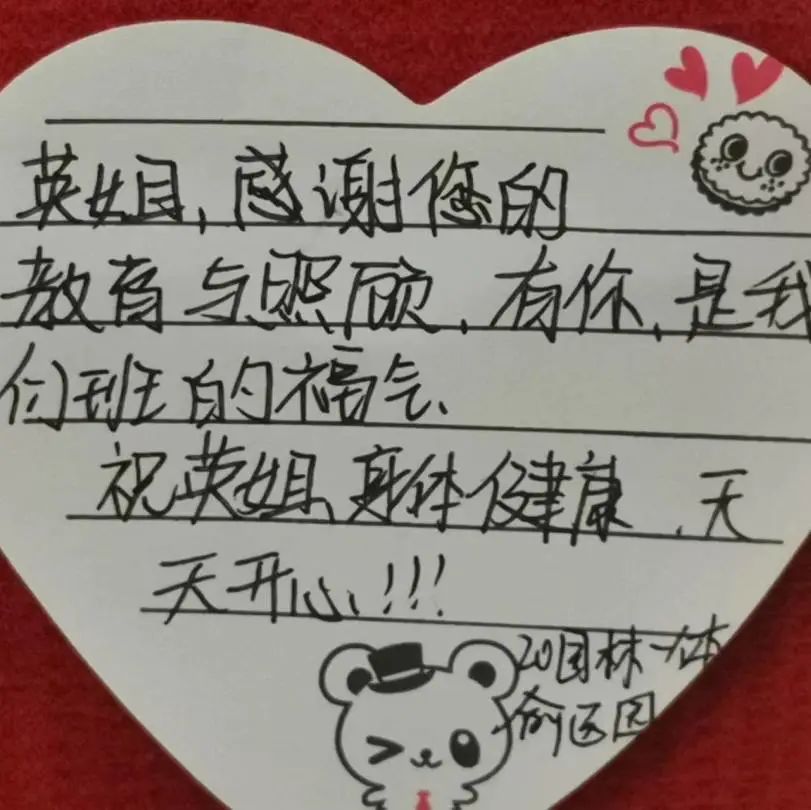 英姐，感谢您的
教育与照顾，有你，是我
们班的福气、
祝英姐、身体健康，天
天开心、!!!
20园林一体
俞运